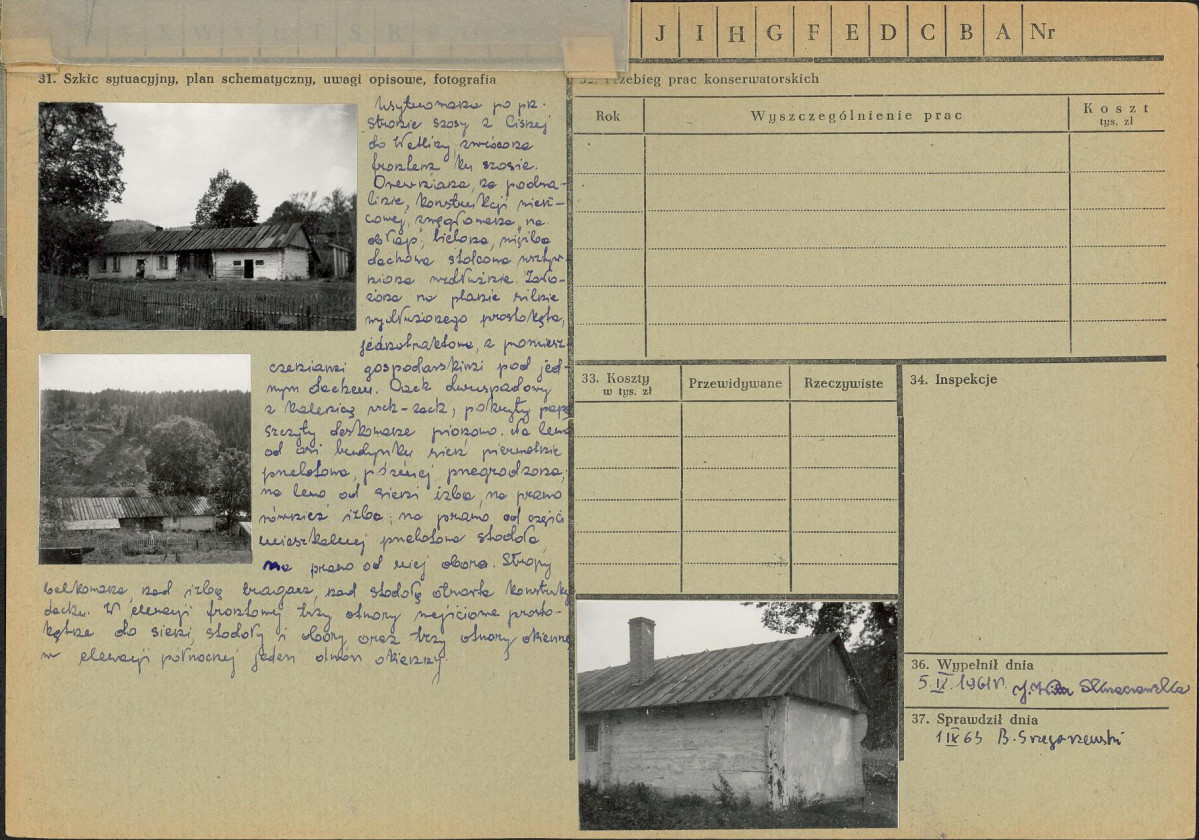 J I H G F E D C B A Nr
31. Szkic sytuacyjny, plan schematyczny, uwagi opisowe, fotografia
Usytuowana po pr.
stronie szosy z Cisnej
do Wetliny, zwrócona
frontem ku szosie.
Drewniana, na podwa-
linie, konstrukcji wień-
cowej, zwęgłowana, na
obłap, bielona, więźba
dachowa stolcowa
wzdłużnie. Zało-
żona na planie silnie
wydłużonego prostokąta,
jednotraktowa, z pomiesz-
czeniami gospodarskimi pod jed-
nym dachem. Dach dwuspadowy
z kalenicą, pokryty papą
szczyty deskowane pionowo. Na lewo
od osi budynku sień pierwotnie
przelotowa, później przegrodzona,
na lewo od sieni izba, na prawo
również izba; na prawo od części
mieszkalnej przelotowa stodoła
na prawo od niej obora. Stropy
belkowane, nad izbą tragarz, nad stodołą otwarta konstrukcj
dachu. W elewacji frontowej trzy otwory wejściowe prosto-
kątne do sieni, stodoły i obory oraz trzy otwory okienne
w elewacji północnej jeden otwór okienny.
32. Przebieg prac konserwatorskich
Rok Wyszczególnienie prac Koszt
tys. zł
33. Koszty
w tys. zł
Przewidywane
Rzeczywiste
34. Inspekcje
36. Wypełnił dnia
5.IX.1961r.
37. Sprawdził dnia
1 IX 63 B. Grzegorzewski